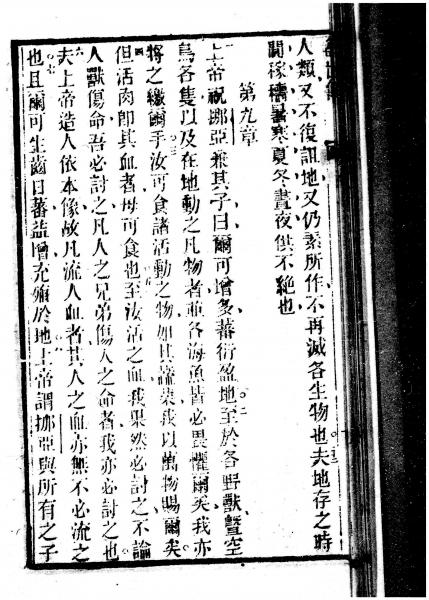 人類又不復詛地又仍素所作不再滅各生物也夫地存之時
間稼穡暑寒夏冬晝夜俱不絶也
第九章
上帝祝挪亞兼其子曰爾可增多蕃衍盈地至於各野獸曁空
鳥各隻以及在地動之凡物者並各海魚皆必畏懼爾矣我亦
將之繳爾手汝可食諸活動之物如其蔬菜我以萬物賜爾矣
但活肉卽其血者毋可食也至汝活之血我果然必討之不論
人獸傷命吾必討之凡人之兄弟傷人之命者我亦必討之也
夫上帝造人依本像故凡流人血者其人之血亦無不必流之
也且爾可生齒日蕃益增充殖於地上帝謂挪亞與所有之子